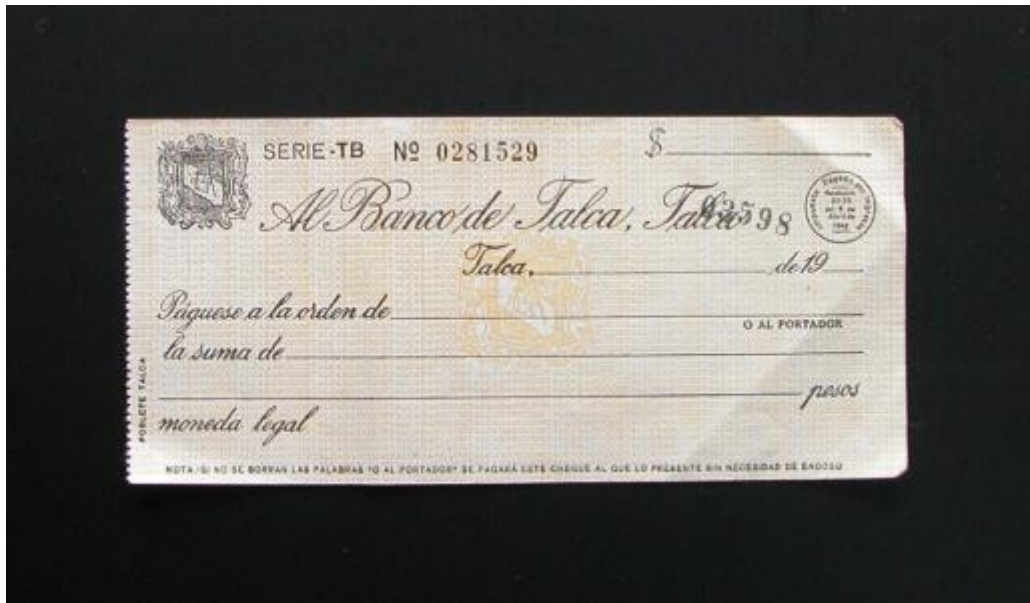 SERIE-TB Nº 0281529 $
Al Banco de Talca, Talca 98
Talca, de 19
Páguese a la orden de
O AL PORTADOR
la suma de
pesos
moneda legal
POBLETE TALCA
NOTA: SI NO SE BORRAN LAS PALABRAS "O AL PORTADOR" SE PAGARÁ ESTE CHEQUE AL QUE LO PRESENTE SIN NECESIDAD DE ENDOSO